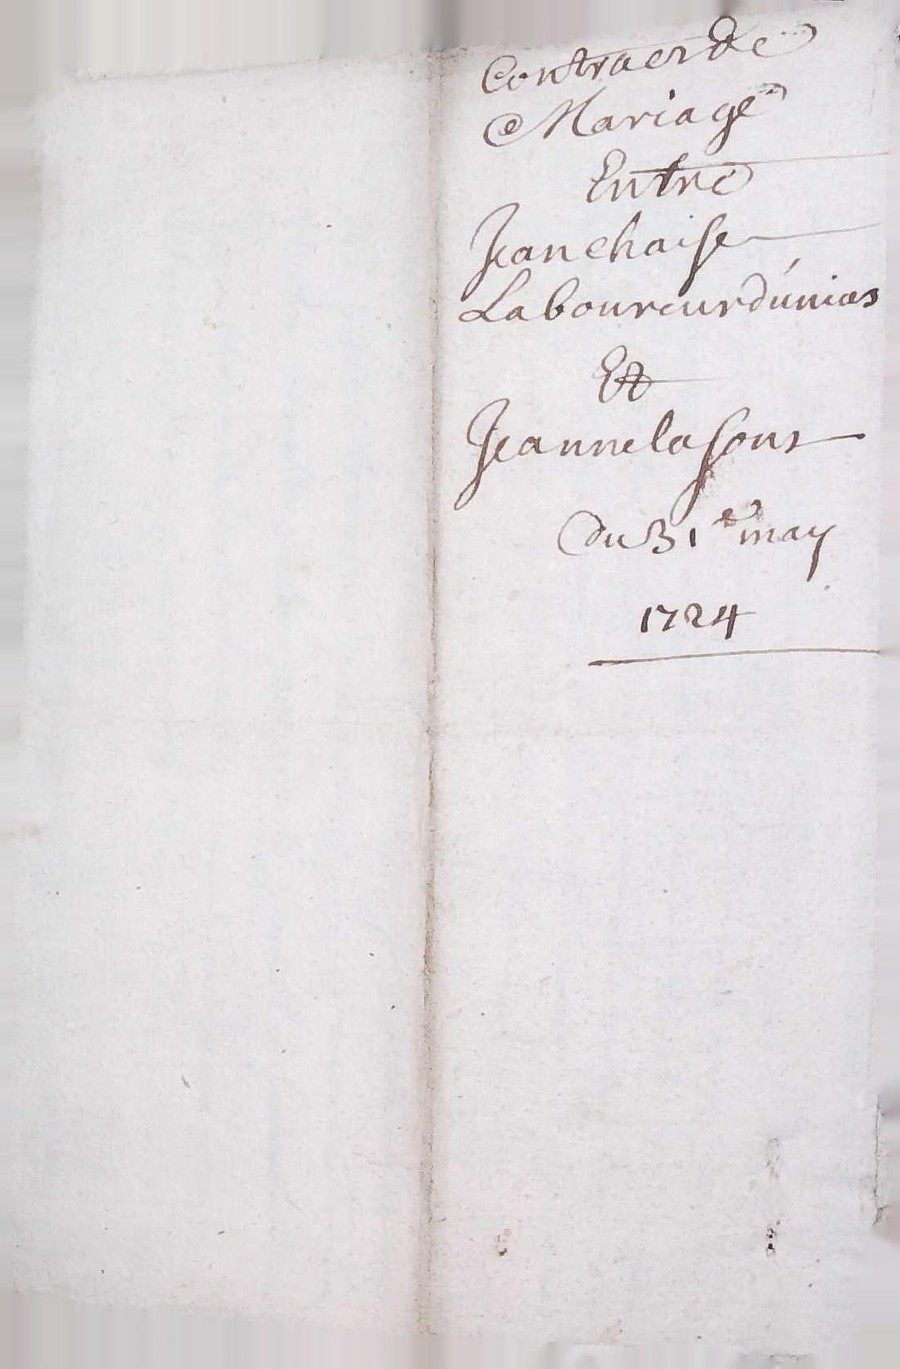 Contract de
Mariage
Entre
Jean chaise
Laboureur d'unias
Et
Jeanne lafont
du 31e may
1724